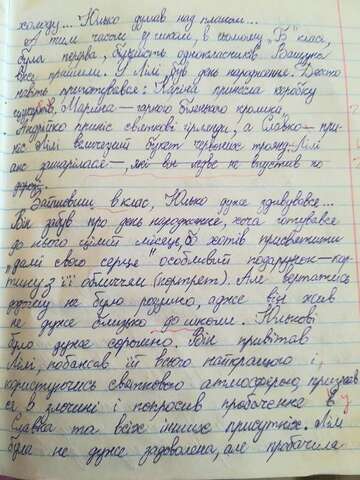 холоду... Юлько думав над планом...
А тим часом у школі, в сьомому „Б" класі,
була перерва, більшість однокласників
вже прийшли. У Лілі був день народження.
Каріна принесла коробку
цукерків, Марина — гарного білого кролика,
Андрійко приніс святкові гірлянди, а Славко — при-
ніс Лілі величезний букет червоних троянд. Лілі
аж зашарілася —, які він ледве не впустив по
дорозі.
Зайшовши в клас, Юлько дуже здивувався...
Він забув про день народження, хоча готувався
до нього цілий місяць, бо хотів присвятити
„дамі свого серця" особливий подарунок — кар-
тину з її обличчям (портрет). Але вертатись
додому не було розумно, адже він жив
не дуже близько до школи. Юлькові
було дуже соромно. Він привітав
Лілі, побажав їй всього найкращого і,
користуючись святковою атмосферою, признав-
ся в злочині і попросив пробачення в
Славка та всіх інших присутніх. Лілі
була не дуже задоволена, але пробачила